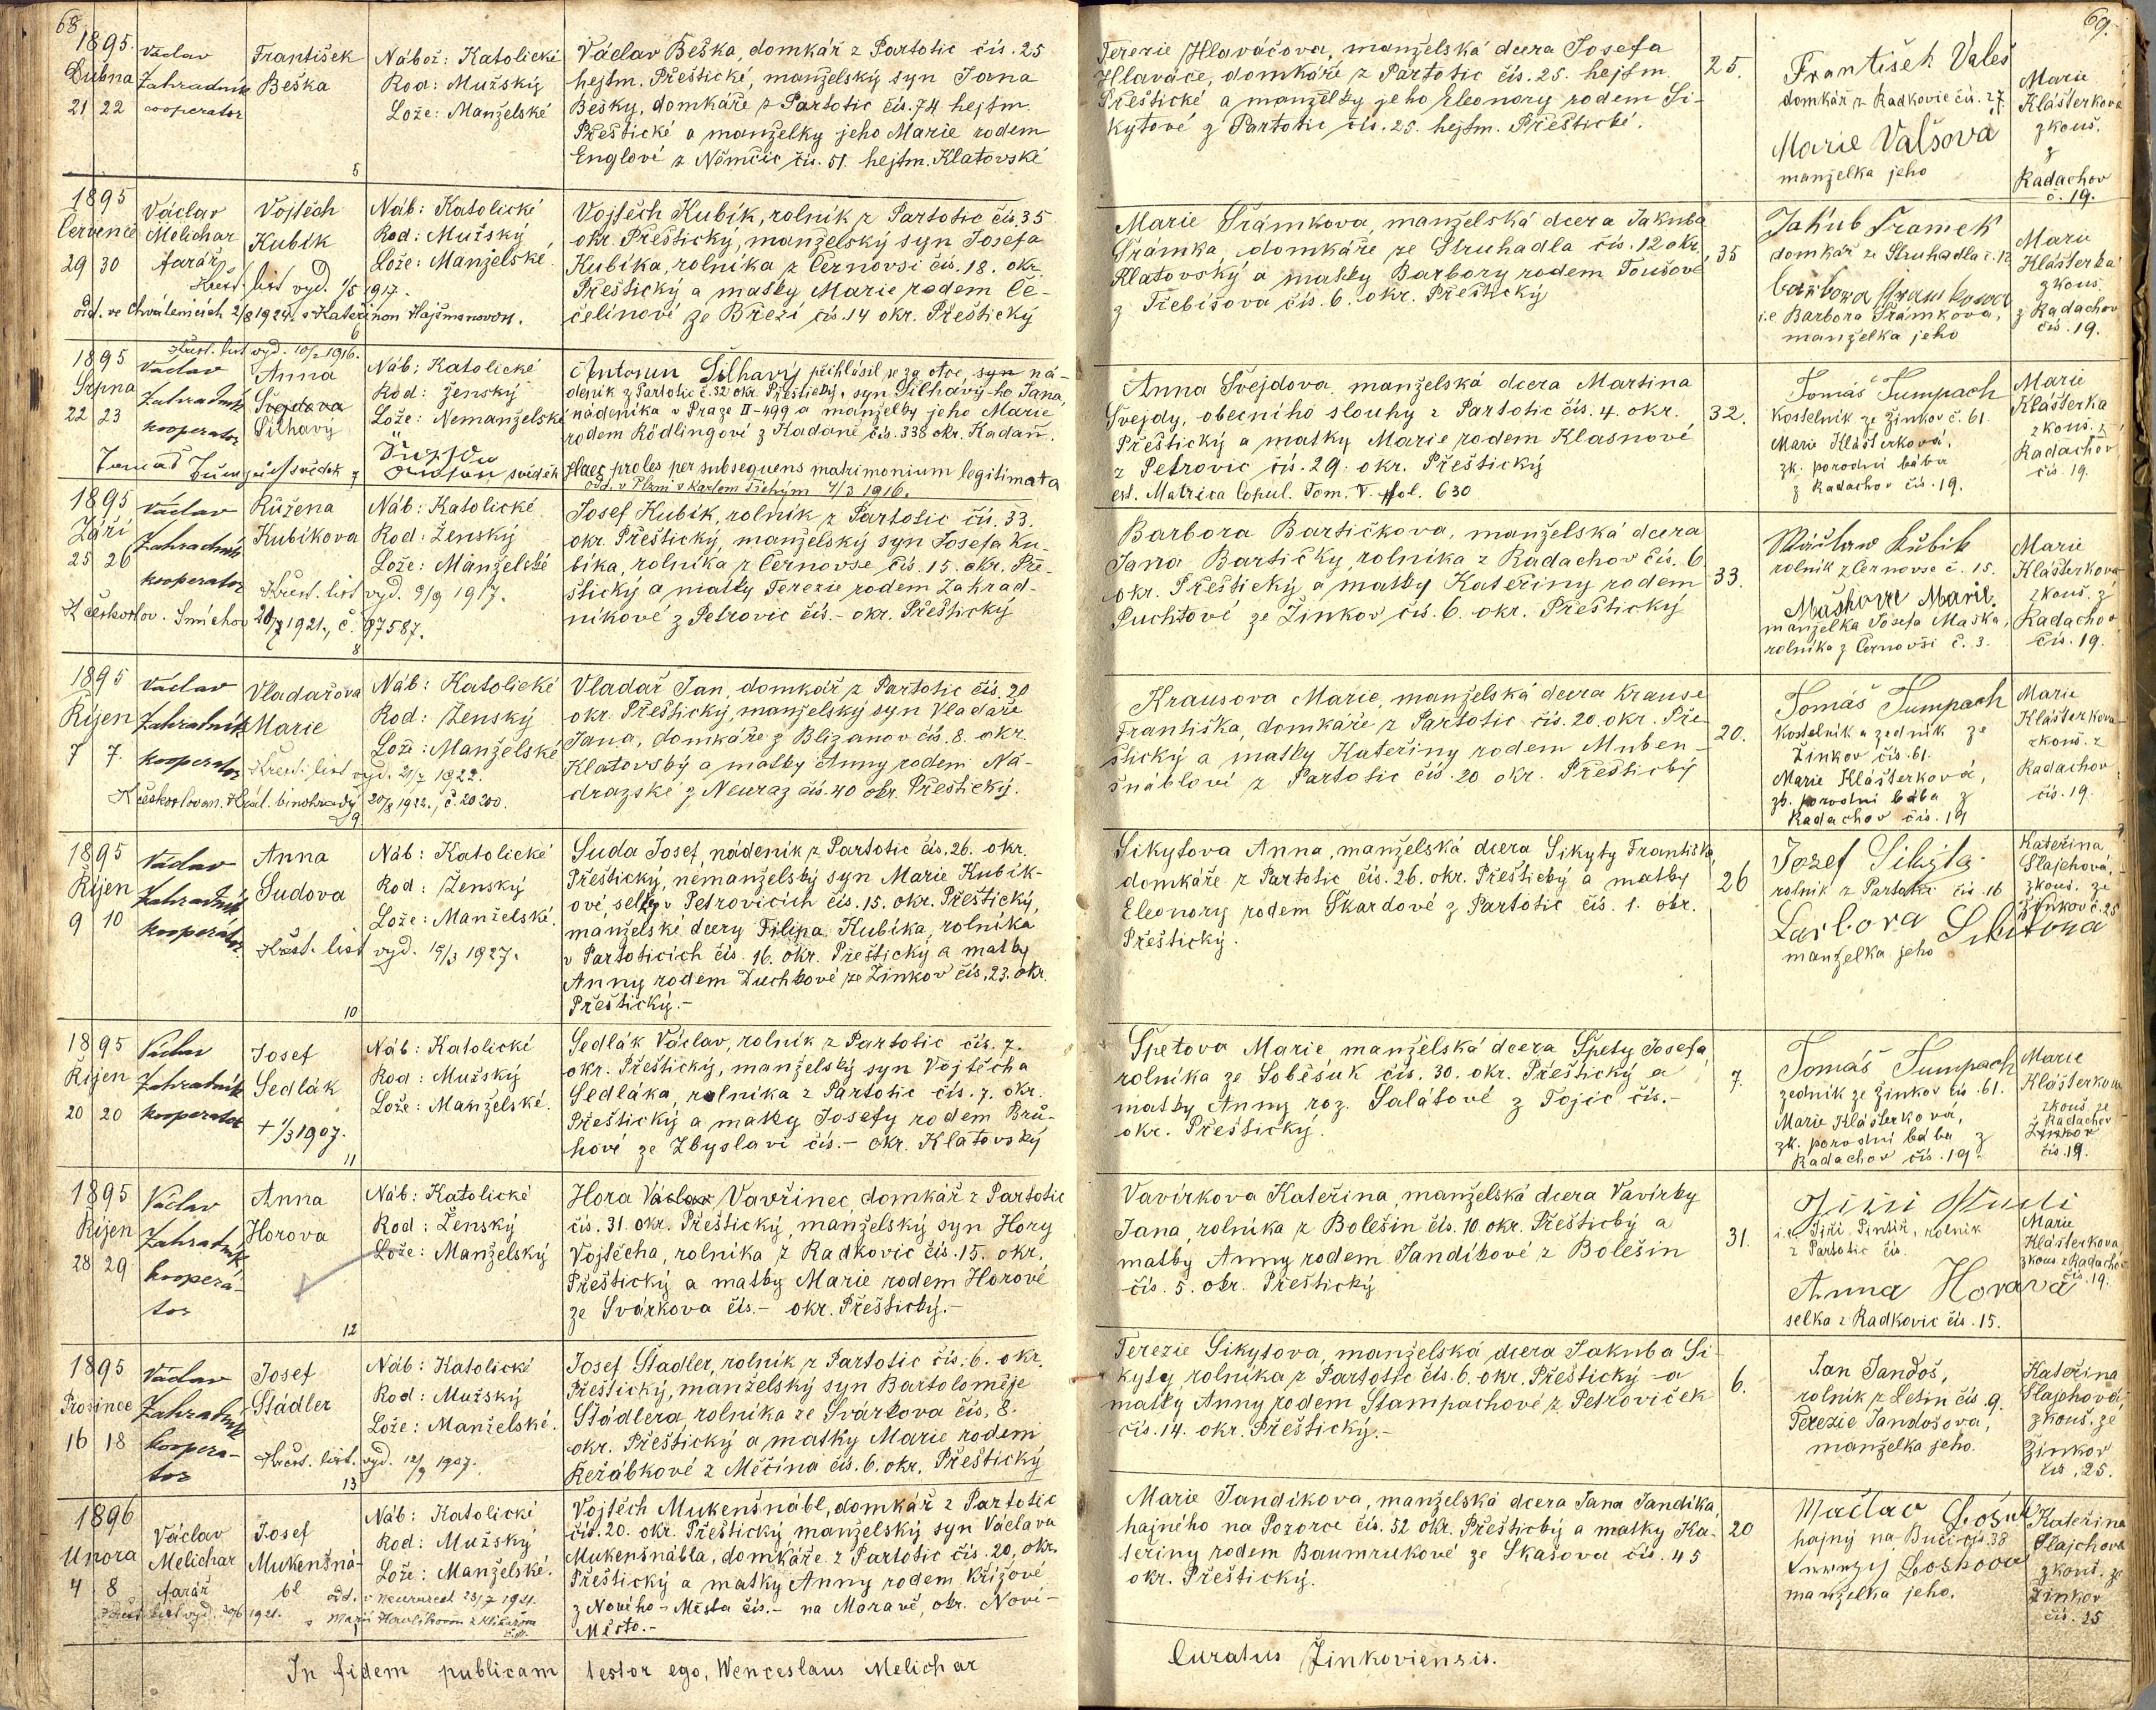 68.
1895.
Dubna
21 22
Václav
Zahradník
cooperator
František
Beška
5
Nábož: Katolické
Rod: Mužský
Lože: Manželské
Václav Beška, domkář z Partotic čís. 25
hejtm. Přeštické, manželský syn Jana
Bešky, domkáře z Partotic čís. 74 hejtm.
Přeštické a manželky jeho Marie rodem
Englové z Němčic čís. 51. hejtm. Klatovské
1895
Července
29 30
Václav
Melichar
farář
Vojtěch
Kubík
Náb: Katolické
Rod: Mužský
Lože: Manželské
Křest. list vyd. 1/5 1917.
odd. ve Chválenicích 2/8 1924. s Kateřinou Hajšmanovou.
6
Vojtěch Kubík, rolník z Partotic čís. 35
okr. Přeštický, manželský syn Josefa
Kubíka, rolníka z Černovsi čís. 18. okr.
Přeštický a matky Marie rodem Če-
čelinové ze Březí čís. 14 okr. Přeštický
Křest. list vyd. 10/2 1916.
1895
Srpna
22 23
Václav
Zahradník
kooperator
Anna
Švejdova
Šilhavý
Náb: Katolické
Rod: ženský
Lože: Nemanželské
svědek
svědek
Antonín Šilhavý přihlásil se za otce, syn ná-
deník z Partotic č. 32 okr. Přeštický, syn Šilhavý-ho Jana,
nádeníka v Praze II-499 a manželky jeho Marie
rodem Rödlingové z Kadaně čís. 338 okr. Kadaň.
Haec proles per subsequens matrimonium legitimata
odd. v Plzni s Karlem Tichým 4/3 1916.
1895
Září
25 26
Václav
Zahradník
kooperator
Růžena
Kubíkova
Náb: Katolické
Rod: Ženský
Lože: Manželské
Křest. list vyd. 9/9 1917.
K českoslov. Smíchov 1921, č. 97587.
8
Josef Kubík, rolník z Partotic čís. 33.
okr. Přeštický, manželský syn Josefa Ku-
bíka, rolníka z Černovse čís. 15. okr. Pře-
štický a matky Terezie rodem Zahrad-
níkové z Petrovic čís.- okr. Přeštický
1895
Říjen
7 7.
Václav
Zahradník
kooperator
Vladařova
Marie
Náb: Katolické
Rod: Ženský
Lože: Manželské
Křest. list vyd. 21/7 1922.
20/8 1922., č. 20200.
9
Vladař Jan, domkář z Partotic čís. 20
okr. Přeštický, manželský syn Vladaře
Jana, domkáře z Blizanov čís. 8. okr.
Klatovský a matky Anny rodem Na-
dražské z Neuraz čís. 40 okr. Přeštický.
1895
Říjen
9 10
Václav
Zahradník
kooperátor
Anna
Sudova
Náb: Katolické
Rod: Ženský
Lože: Manželské.
Křest. list vyd. 15/3 1927.
10
Suda Josef, nádeník z Partotic čís. 26. okr.
Přeštický, nemanželský syn Marie Kubík-
ové, selky v Petrovicích čís. 15. okr. Přeštický,
manželské dcery Filipa Kubíka, rolníka
v Partoticích čís. 16. okr. Přeštický a matky
Anny rodem Duchkové ze Žinkov čís. 23. okr.
Přeštický.-
1895
Říjen
20 20
Václav
Zahradník
kooperator
Josef
Sedlák
+ 1/3 1907.
11
Náb: Katolické
Rod: Mužský
Lože: Manželské.
Sedlák Václav, rolník z Partotic čís. 7.
okr. Přeštický, manželský syn Vojtěcha
Sedláka, rolníka z Partotic čís. 7. okr.
Přeštický a matky Josefy rodem Brů-
hové ze Zbyslavi čís.- okr. Klatovský
1895
Říjen
28 29
Václav
Zahradník
kooperá-
tor
Anna
Horova
12
Náb: Katolické
Rod: Ženský
Lože: Manželský
Hora Václav Vavřinec, domkář z Partotic
čís. 31. okr. Přeštický, manželský syn Hory
Vojtěcha, rolníka z Radkovic čís. 15. okr.
Přeštický a matky Marie rodem Horové
ze Svárkova čís.- okr. Přeštický.-
1895
Prosince
16 18
Václav
Zahradník
koopera-
tor
Josef
Štádler
Náb: Katolické
Rod: Mužský
Lože: Manželské.
Křest. list. vyd. 12/9 1907.
13
Josef Štadler, rolník z Partotic čís. 6. okr.
Přeštický, manželský syn Bartoloměje
Štádlera, rolníka ze Svárkova čís. 8.
okr. Přeštický a matky Marie rodem
Řeřábkové z Měčína čís. 6. okr. Přeštický
1896
Unora
4 8
Václav
Melichar
farář
Josef
Mukenšná-
bl
Náb: Katolické
Rod: Mužský
Lože: Manželské.
odd. v Neurazech 23/7 1921.
Křest. list vyd. 1921.
Vojtěch Mukenšnábl, domkář z Partotic
čís. 20. okr. Přeštický manželský syn Václava
Mukenšnábla, domkáře z Partotic čís. 20, okr.
Přeštický a matky Anny rodem Křížové
z Nového-Města čís.- na Moravě, okr. Nové-
Město.-
In fidem publicam testor ego, Wenceslaus Melichar
69.
Terezie Hlaváčova, manželská dcera Josefa
Hlaváče, domkáře z Partotic čís. 25. hejtm.
Přeštické a manželky jeho Eleonory rodem Si-
kytové z Partotic čís. 25. hejtm. Přeštické.
25.
František Valeš
domkář z Radkovic čís. 27.
Marie Valšova
manželka jeho
Marie
Klášterkova
zkouš.
z
Radachov
č. 19.
Marie Šrámkova, manželská dcera Jakuba
Šrámka, domkáře ze Struhadla čís. 12 okr.
Klatovský a matky Barbory rodem Toušové
z Třebíšova čís. 6. okr. Přeštický
35
Jakub Šramek
domkář ze Struhadla č. 12
i.e Barbora Šrámkova,
manželka jeho
Marie
Klášterka
zkouš.
z Radachov
čís. 19.
Anna Švejdova, manželská dcera Martina
Švejdy, obecního slouhy z Partotic čís. 4. okr.
Přeštický a matky Marie rodem Klasnové
z Petrovic čís. 29. okr. Přeštický
est. Matrica Copul. Tom. V. fol. 630
32.
Tomáš Tumpach
Kostelník ze Žinkov č. 61
Marie Klášterková,
zk. porodní bába
z Radachov čís. 19.
Marie
Klášterka
zkouš. z
Radachov
čís. 19.
Barbora Bartičkova, manželská dcera
Jana Bartičky, rolníka z Radachov čís. 6
okr. Přeštický a matky Kateřiny rodem
Puchtové ze Žinkov čís. 6. okr. Přeštický
33.
Wáclaw Kubik
rolník z Černovse č. 15.
Maškova Marie.
manželka Josefa Maška,
rolníka z Černovsi č. 3.
Marie
Klášterkova
zkouš. z
Radachov
čís. 19.
Krausova Marie, manželská dcera Krause
Františka, domkáře z Partotic čís. 20. okr. Pře-
štický a matky Kateřiny rodem Muken-
šnáblové z Partotic čís. 20 okr. Přeštický
20.
Tomáš Tumpach
Kostelník a zedník ze
Žinkov čís. 61.
Marie Klášterková,
zk. porodní bába z
Radachov čís. 19
Marie
Klášterkova
zkouš. z
Radachov
čís. 19.
Sikytova Anna, manželská dcera Sikyty Františka,
domkáře z Partotic čís. 26. okr. Přeštický a matky
Eleonory rodem Škardové z Partotic čís. 1. okr.
Přeštický.
26
Jozef Sikyta
rolník z Partotic čís. 16
Barbora Sikitova
manželka jeho
Kateřina
Šlajchová,
zkouš. ze
Žinkov č. 25
Špetova Marie, manželská dcera Špety Josefa,
rolníka ze Soběsuk čís. 30. okr. Přeštický a
matky Anny roz. Salátové z Tojic čís.-
okr. Přeštický.
7.
Tomáš Tumpach
zedník ze Žinkov čís. 61.
Marie Klášterková,
zk. porodní bába z
Radachov čís. 19.
Marie
Klášterkova
zkouš. ze
Radachov
Žinkov
čís. 19.
Vavírkova Kateřina, manželská dcera Vavírky
Jana, rolníka z Bolešin čís. 10. okr. Přeštický a
matky Anny rodem Jandíkové z Bolešin
čís. 5. okr. Přeštický
31.
i.e. Jiří Pintíř, rolník
z Partotic čís.
Anna Horavá
selka z Radkovic čís. 15.
Marie
Klášterkova
zkouš. z Radachov
čís. 19.
Terezie Sikytova, manželská dcera Jakuba Si-
kyty, rolníka z Partotic čís. 6. okr. Přeštický a
matky Anny rodem Štampachové z Petroviček
čís. 14. okr. Přeštický.-
6.
Jan Jandoš,
rolník z Letin čís. 9.
Terezie Jandošova,
manželka jeho.
Kateřina
Šlajchová,
zkouš. ze
Žinkov
čís. 25.
Marie Jandíkova, manželská dcera Jana Jandíka,
hajného na Pozorce čís. 52 okr. Přeštický a matky Ka-
teřiny rodem Baumrukové ze Skašova čís. 45
okr. Přeštický.
20
hajný na Buči čís. 38
manželka jeho.
Kateřina
Šlajchova
zkouš. ze
Žinkov
čís. 25
Curatus Žinkoviensis.